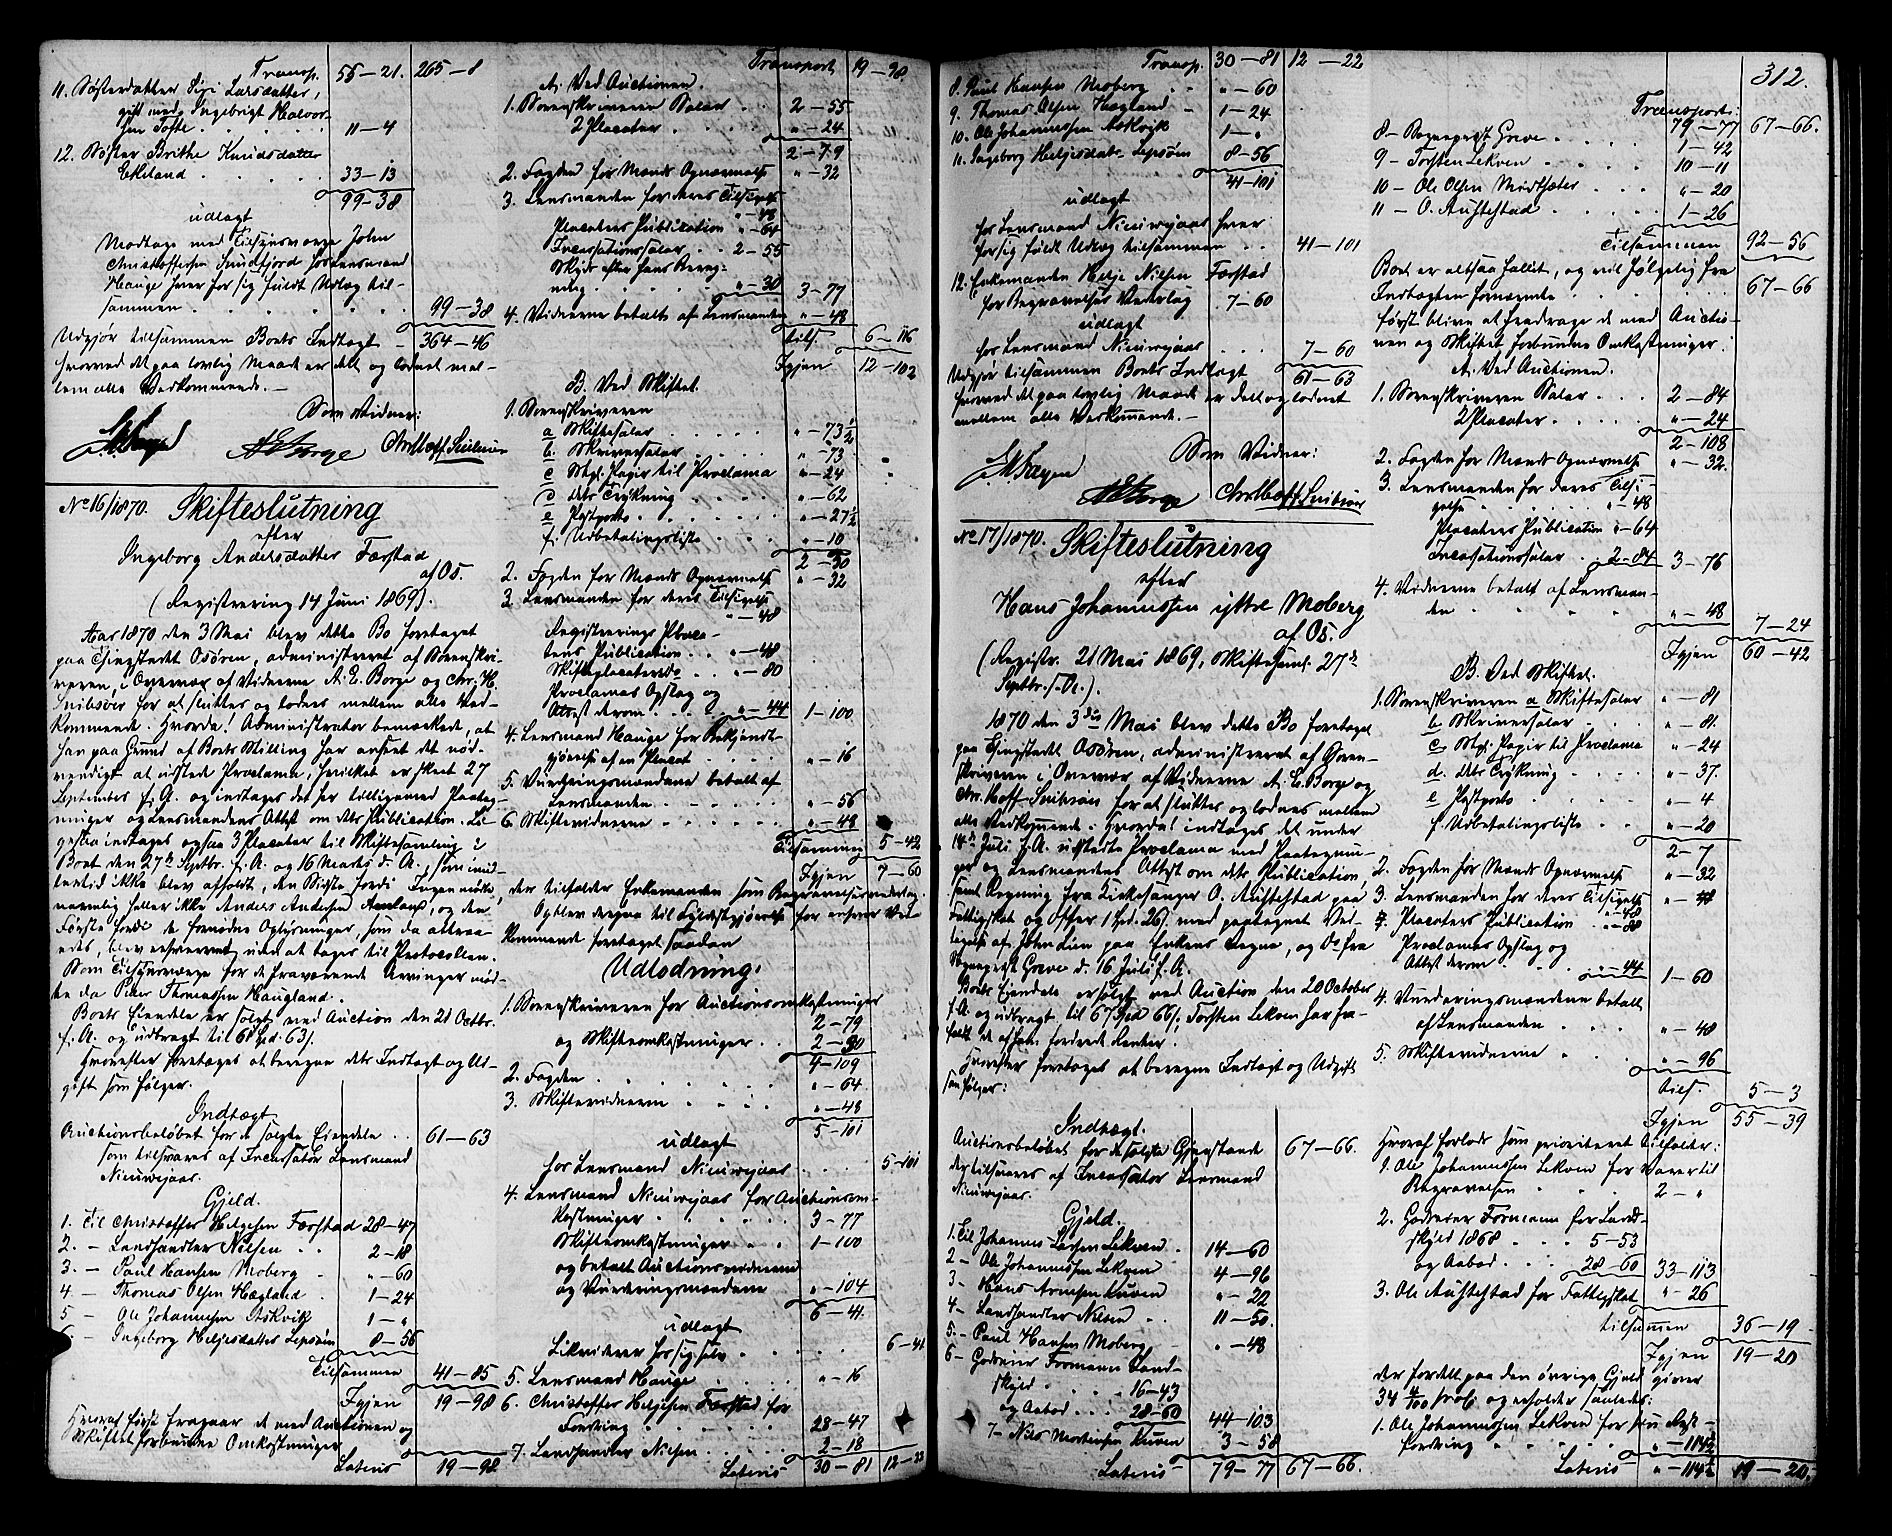 Transp. 55-21. 265-8
11. Søsterdatter Siri Larsdatter,
gift med Ingebrigt Halvor-
sen Tofte . . . . 11-4
12. Søster Brithe Knudsdatter
Ekeland . . . . 33-13
99-38
udlagt
Modtage med Tilsynsværge John
Christoffersen Sundfjord hos Lensmand
Hauge hver for sig fuldt Udlæg til-
sammen . . . . 99-38
Udgjør tilsammen Boets Indtægt - 364-46
hvorved det paa lovlig Maade er delt og lodnet mel-
lem alle Vedkommende. -
Som Vidner:
A E Borge
No 16/1870. Skifteslutning
efter
Ingeborg Andersdatter Færstad
af Os.
(Registrering 14 Juni 1869).
Aar 1870 den 3 Mai blev dette Bo foretaget
paa Thingstedet Osøren, administreret af Sorenskri-
veren, i Overvær af Vidnerne A. E. Borge og Chr. H.
for at sluttes og lodnes mellem alle Ved-
kommende. Hvorda! Administrator bemærkede, at
han paa Grund af Boets Stilling har anseet det nød-
vendigt at udstede Proclama, hvilket er skeet 27
September f. A. og indtages det her tilligemed Paateg-
ninger og Lensmandens Attest om dets Publication. Li-
gesaa indtages ogsaa 3 Placater til Skiftesamling i
Boet den 27de Septbr. f. A. og 16 Marts d. A., som imid-
lertid ikke blev afholdt, den Sidste fordi Ingen mødte,
navnlig heller ikke Anders Andersen , og den
Første fordi de fornødne Oplysninger, som da attraa-
edes, blev uden at tages til Protocollen.
Som Tilsynsværge for de fraværende Arvinger mød-
te da Peder Thomassen Haugland.
Boets Eiendele er solgt ved Auction den 21 Octbr.
f. A. og udbragt til 61 Spd. 63 s.
Hvorefter foretages at beregne dets Indtægt og Ud-
gift som følger.
Indtægt
Auctionsbeløbet for de solgte Eiendele . . 61-63
som tilsvares af Incassator Lensmand
Nieuwejaar.
Gjeld.
1. Til Christoffer Helgesen Færstad 28-47
2. - Landhandler Nilsen . . 2-18
3. - Paul Hansen Moberg - "-60
4. - Thomas Olsen Hægland - 1-24
5 - Ole Johannesen Askvik 1-"
6. - Ingeborg Heljesdatter Lepsøen 8-56
Tilsammen 41-85
Igjen 19-98
Hvoraf først fragaar de med Auctionen og
Skiftet forbundne Omkostninger
Lateris 19-98
Transport 19-98
A. Ved Auctionen.
1. Sorenskriveren Salær . . 2-55
2 Placater . . . . "-24
2-79
2. Fogden for Mænds Opnævnelse "-32
3. Lensmanden for deres Tilsigelse
"-48
Placaters Publication "-64
Incassationssalær . . 2-55
Skyds efter hans Reg-
ning . . . . "-30 3-77
4. Vidnerne betalt af Lensmanden "-48
tils. 6-116
Igjen 12-102
B. Ved Skiftet.
1. Sorenskriveren
a Skiftesalær . . . . "-73½
b. Skriversalær . . . . "-73
c Stpl. Papir til Proclama "-24
d dets Trykning . . . "-62
e Postporto . . . . . "-27½
f. Udbetalingsliste . . "-10
2-30
2. Fogden for Mænds Opnævnelse "-32
3. Lensmanden for deres Tilsigelse
"-48
Registrerings Placa-
tens Publication . . "-48
Skifteplacaterne . . "-80
Proclamas Opslag og
Attest derom . . . . "-44 1-100
4. Lensmand Hauge for Bekjendt-
gjørelse af en Placat . . . "-16
5. Vurderingsmændene betalt af
Lensmanden . . . . . "-56
6. Skiftevidnerne . . . . "-48
Tilsammen 5-42
Igjen 7-60
der tilfalder Enkemanden som Begravelsesvederlag.
Og blev derpaa til Fyldestgjørelse for enhver Ved-
kommende foretaget saadan
Udlodning:
1. Sorenskriveren for Auctionsomkostninger
2-79
og Skifteomkostninger . . 2-30
4-109
2. Fogden . . . . "-64
3. Skiftevidnerne . . . "-48
5-101
udlagt
hos Lensmand Nieuwejaar . . . 5-101
4. Lensmand Nieuwejaar for Auctionsom-
kostninger . . . . 3-77
Skifteomkostninger . . 1-100
og betalt Auctionsvidnerne
og Vurderingsmændene "-104
6-41.
udlagt
Likviderer hos sig selv . . . . 6-41
5. Lensmand Hauge . . . . "-16
6. Christoffer Helgesen Færstad for
Fordring . . . . 28-47
7. Landhandler Nilsen . . . 2-18
Lateris 30-81 12-22
Transp. 30-81 12-22
8. Paul Hansen Moberg . . "-60
9. Thomas Olsen Hægland - 1-24
10. Ole Johannesen Askvik 1-"
11. Ingeborg Heljesdatr. Lepsøen 8-56
41-101
udlagt
hos Lensmand Nieuwejaar hver
for sig fuldt Udlæg tilsammen . . 41-101
12. Enkemanden Helje Nilsen Færstad
for Begravelses Vederlag . 7-60
udlagt
hos Lensmand Nieuwejaar . . . 7-60
Udgjør tilsammen Boets Indtægt 61-63
hvorved det paa lovlig Maade er delt og lodnet
mellem alle Vedkommende. -
Som Vidner:
A E Borge
No 17/1870. Skifteslutning
efter
Hans Johannessen ytre Moberg
af Os.
(Registr. 21 Mai 1869, Skiftesaml. 27de
Septbr. s. A.).
1870 den 3die Mai blev dette Bo foretaget
paa Thingstedet Osøren, administreret af Soren-
skriveren i Overvær af Vidnerne A. E. Borge og
Chr. Hoff for at sluttes og lodnes mellem
alle Vedkommende. Hvorda! indtages det under
14de Juli f. A. udstedte Proclama med Paategnin-
ger og Lensmandens Attest om dets Publication,
samt Regning fra Kirkesanger O. Austestad paa
Fattigskat og Offer 1 Spd. 26 s. med paategnet Ved-
tagelse af John Lien paa Enkens Vegne, og Do fra
Sogneprest Greve d. 16 Juli f. A.
Boets Eiendele er solgt ved Auction den 20 October
f. A. og udbragt til 67 Spd 66 s. Torsten Lekven har fra-
faldt de af ham fordrede Renter.
Hvorefter foretages at beregne Indtægt og Udgift
som følger:
Indtægt.
Auctionsbeløbet for de solgte Gjenstande 67-66.
der tilsvares af Incassator Lensmand
Nieuwejaar.
Gjeld.
1. Til Johannes Larsen Lekven . 14-60
2 - Ole Johannessen Lekven . 4-96
3 - Hans Arnesen Kuven . "-22
4 - Landhandler Nilsen . 11-50.
5. - Paul Hansen Moberg . "-48
6 - Godseier Formann Land-
skyld . . . . 16-43
og Aabod . . . 28-60 44-103
7 - Nils Mortensen Kuven 3-58
Lateris 79-77 67-66.
312.
Transport: 79-77 67-66.
8 - Sogneprest Greve . . . . 1-42
9 - Torsten Lekven . . . . 10-11
10 - Ole Olsen Midtsæter . . . "-20
11 - O. Austestad . . . . 1-26
Tilsammen 92-56
Boet er altsaa fallit, og vil følgelig fra
Indtægten fornævnte . . . . 67-66
først blive at fradrage de med Auctio-
nen og Skiftet forbundne Omkostninger:
A. Ved Auctionen.
1. Sorenskriveren Salær . . . 2-84
2 Placater . . . . "-24
2-108
2. Fogden for Mænds Opnævnelse "-32.
3. Lensmanden for deres Tilsi-
gelse . . . . "-48
Placaters Publication "-64
Incassationssalær . 2-84 3-76
4. Vidnerne betalt af Lensman-
den . . . . "-48
7-24
Igjen 60-42
B. Ved Skiftet.
1. Sorenskriveren a Skiftesalær "-81
b Skriversalær . . . "-81.
c Stpl. Papir til Proclama "-24
d. dets Trykning . . . . "-37.
e Postporto . . . . "-4
f. Udbetalingsliste . . "-20
2-7
2. Fogden for Mænds Opnævnelse "-32
3. Lensmanden for deres Tilsigelse
"-48
Placaters Publication . "-88
Proclamas Opslag og
Attest derom . . . "-44 1-60
4. Vurderingsmændene betalt
af Lensmanden . . . "-48
5. Skiftevidnerne . . . "-96
tils. 5-3
Igjen 55-39
Hvoraf forlods som prioriteret tilfalder:
1. Ole Johannessen Lekven for Varer til
Begravelsen . . . 2-"
2. Godseier Formann for Land-
skyld 1868 . . . 5-53
og Aabod . . . 28-60 33-113
3. Ole Austestad for Fattigskat "-26
tilsammen 36-19
Igjen 19-20
der fordelt paa den øvrige Gjeld giver
34 4/100 pro C. og erholder saaledes:
1. Ole Johannessen Lekven for sin Rest-
fordring . . . . "-114½
Lateris "-114½ 19-20.